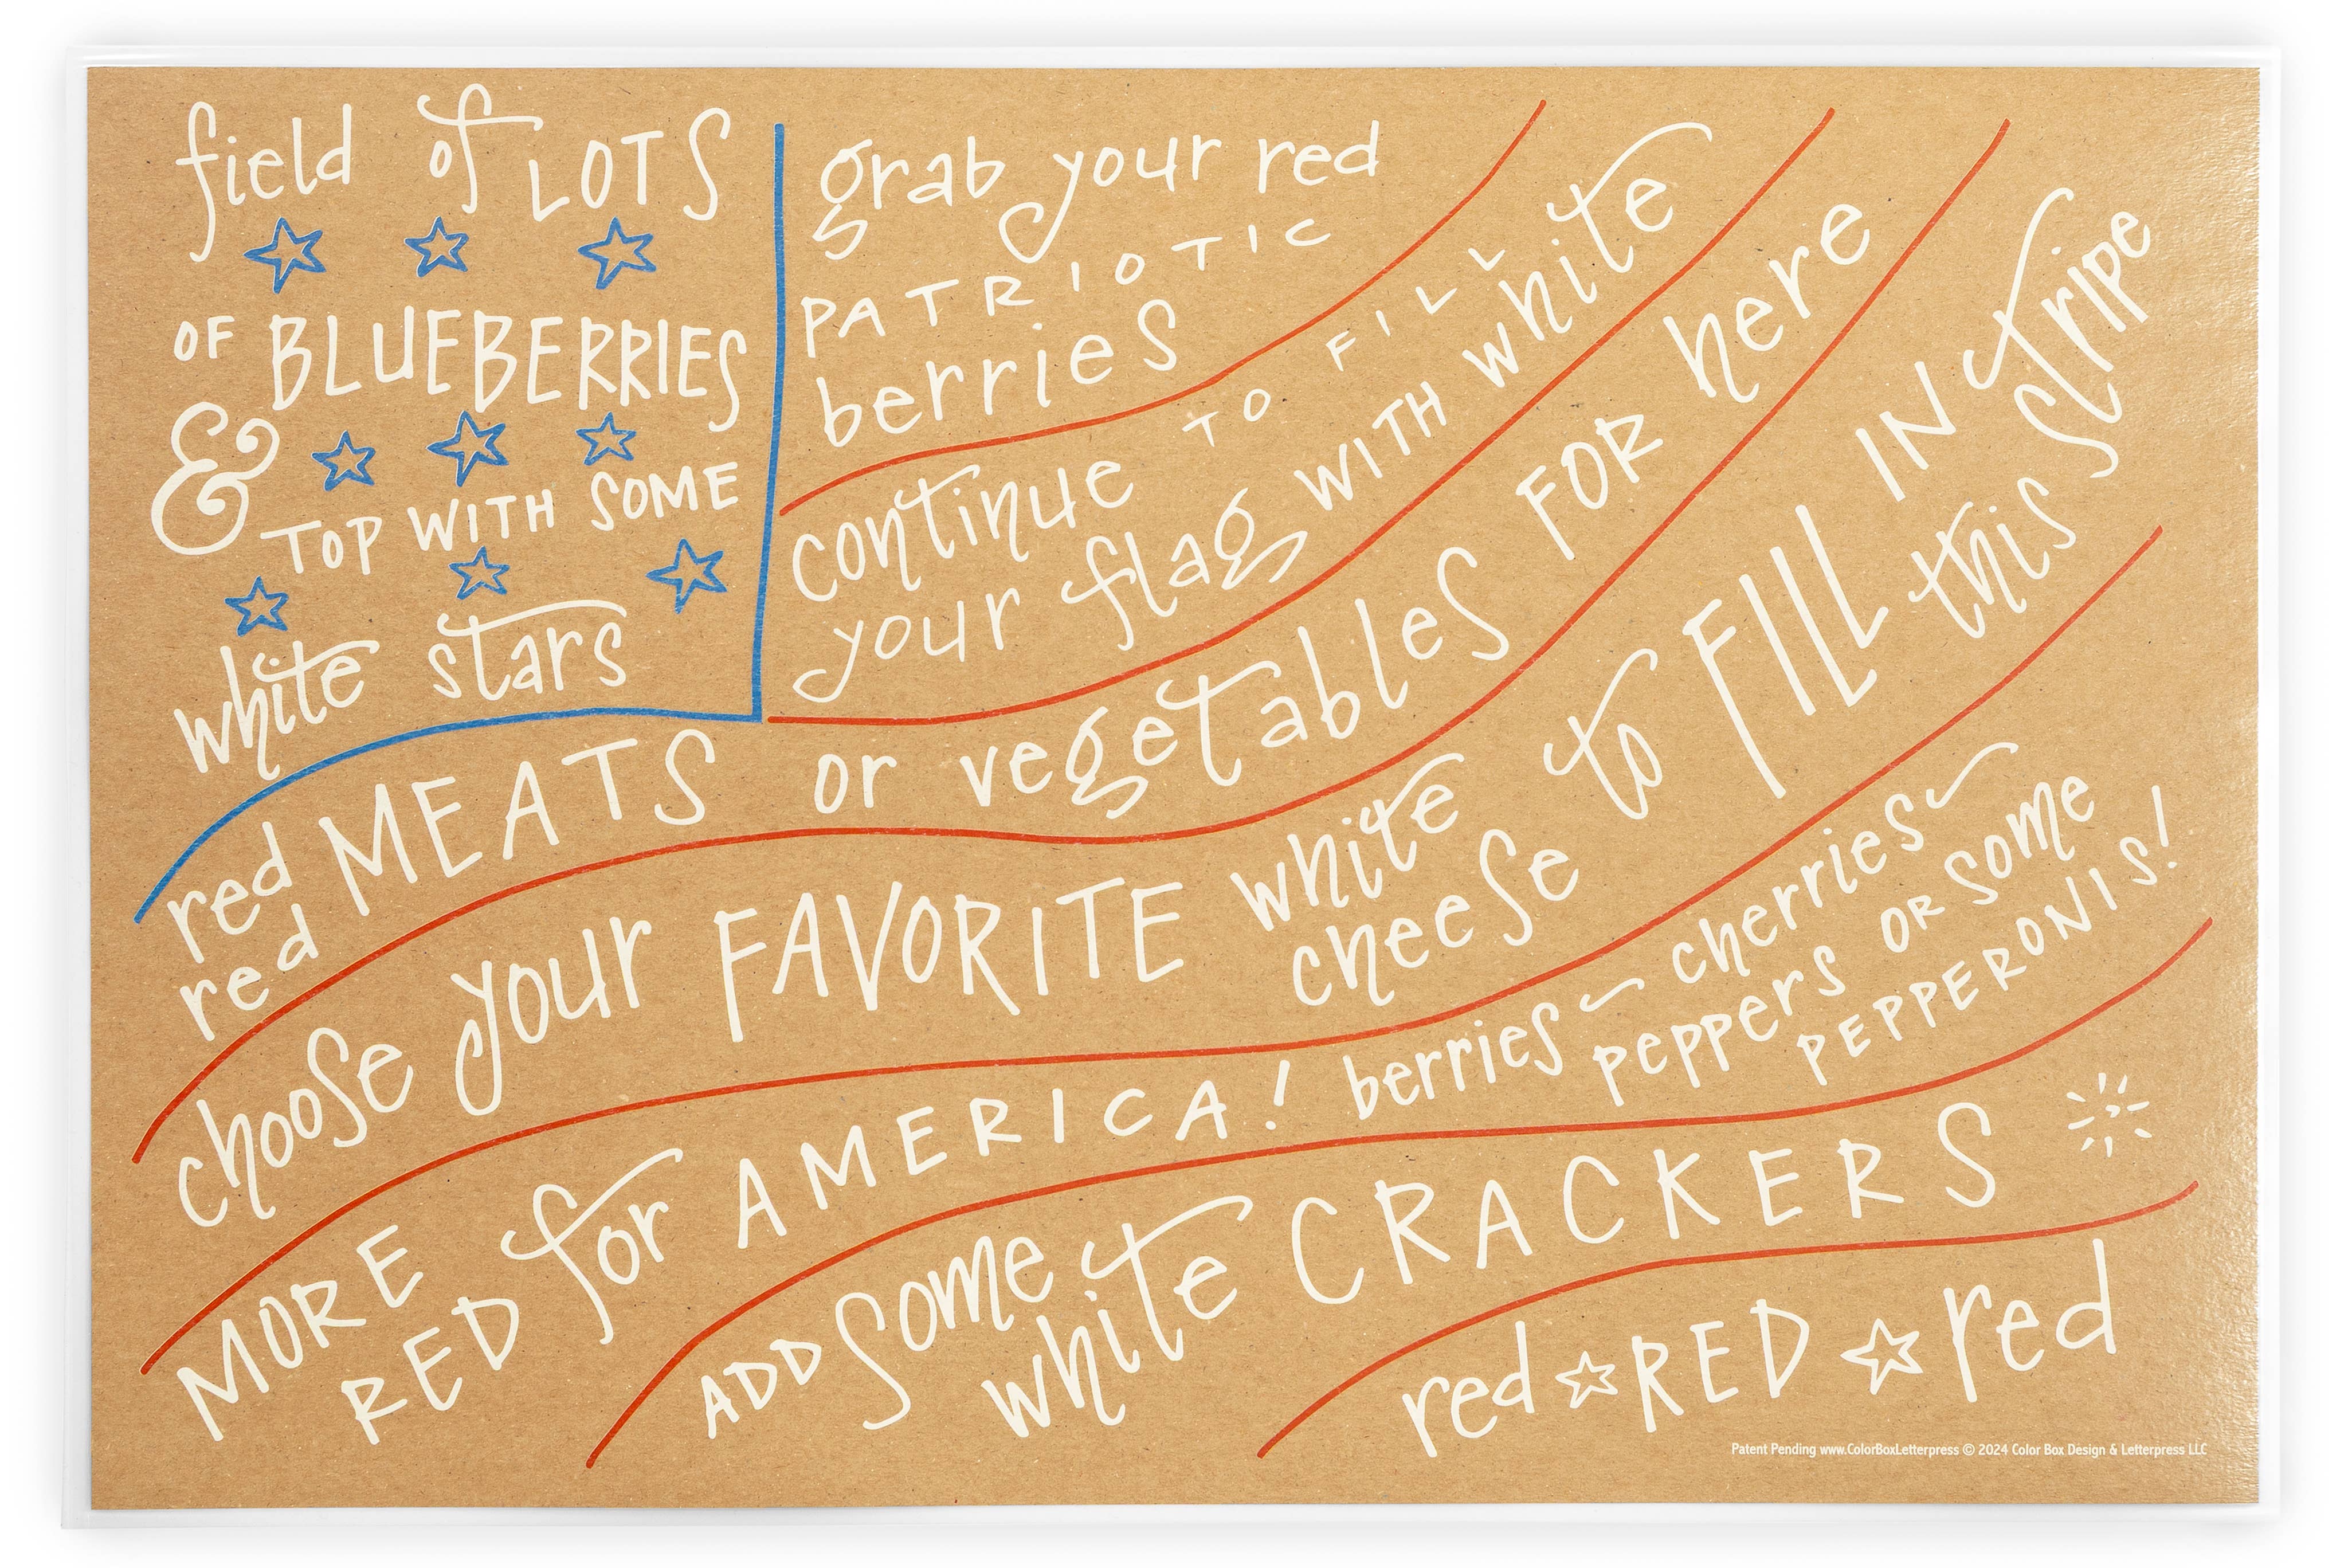 field of LOTS
OF BLUEBERRIES
& TOP WITH SOME
white stars
grab your red
PATRIOTIC
berries
continue TO FILL
your flag WITH white
red MEATS or vegetables FOR here
red
choose your FAVORITE white cheese to FILL IN this stripe
MORE RED for AMERICA! berries ~ cherries ~
peppers OR SOME
PEPPERONIS!
ADD some white CRACKERS
red ☆ RED ☆ red
Patent Pending www.ColorBoxLetterpress © 2024 Color Box Design & Letterpress LLC